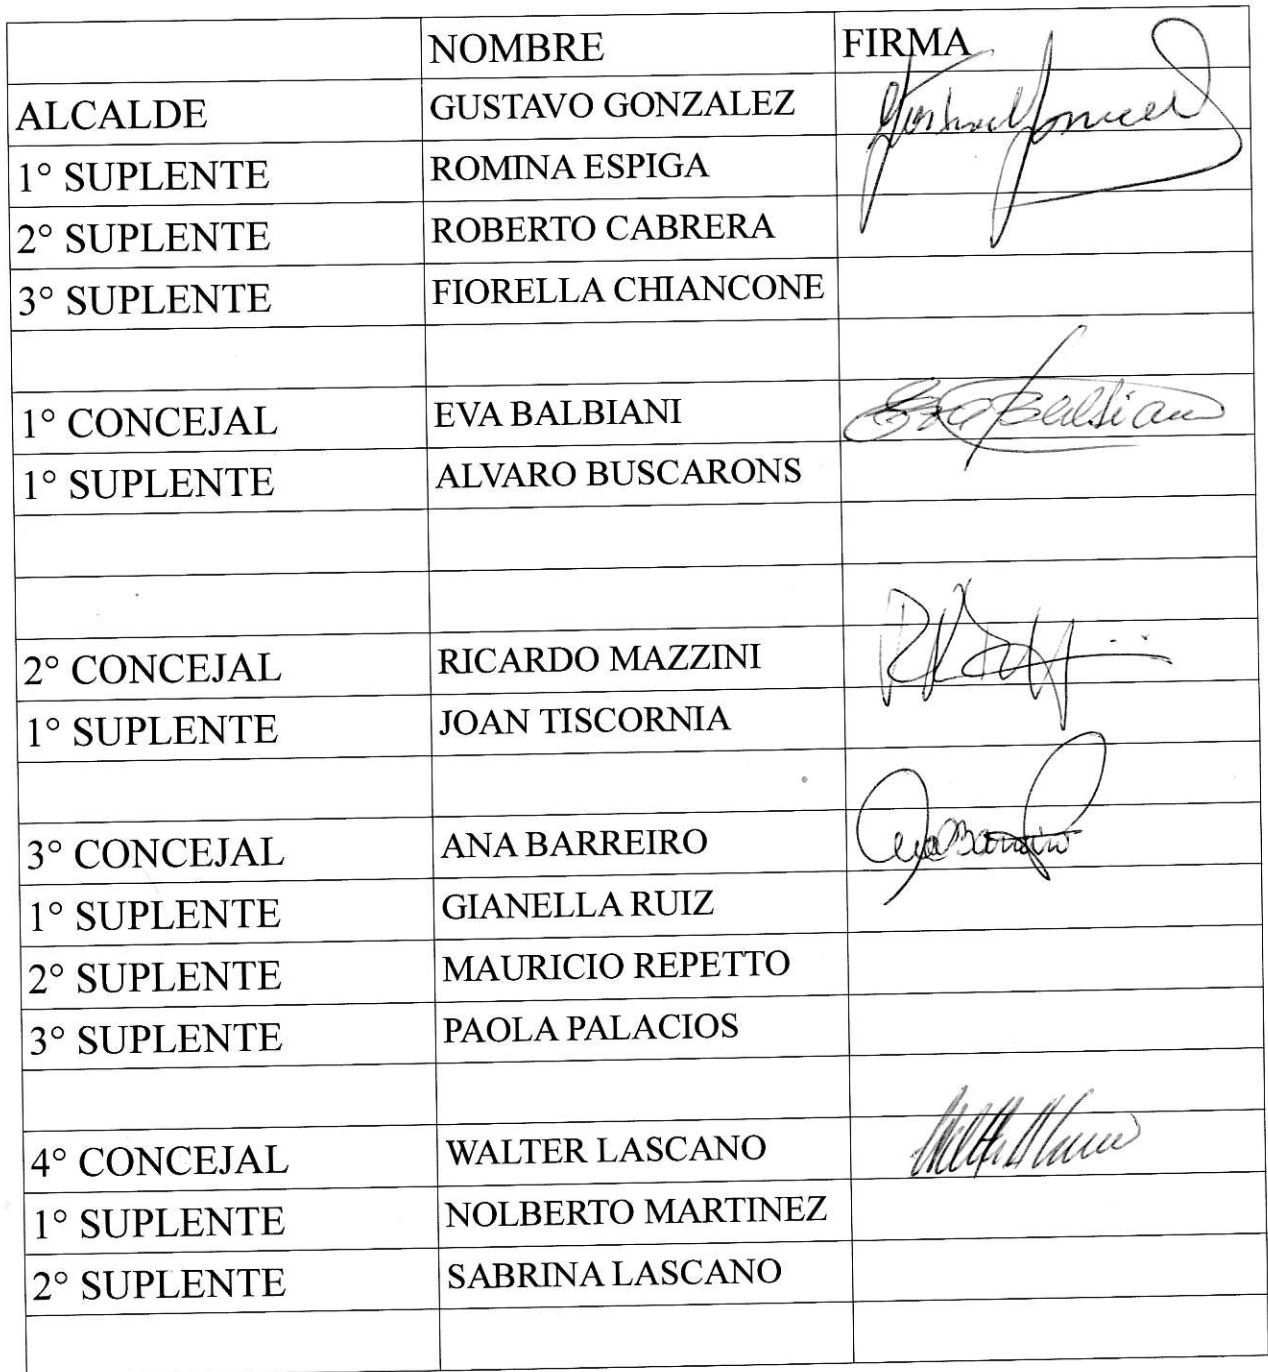 NOMBRE FIRMA
ALCALDE GUSTAVO GONZALEZ
1° SUPLENTE ROMINA ESPIGA
2° SUPLENTE ROBERTO CABRERA
3° SUPLENTE FIORELLA CHIANCONE
1° CONCEJAL EVA BALBIANI Eva Balbiani
1° SUPLENTE ALVARO BUSCARONS
2° CONCEJAL RICARDO MAZZINI
1° SUPLENTE JOAN TISCORNIA
3° CONCEJAL ANA BARREIRO Ana Barreiro
1° SUPLENTE GIANELLA RUIZ
2° SUPLENTE MAURICIO REPETTO
3° SUPLENTE PAOLA PALACIOS
4° CONCEJAL WALTER LASCANO
1° SUPLENTE NOLBERTO MARTINEZ
2° SUPLENTE SABRINA LASCANO